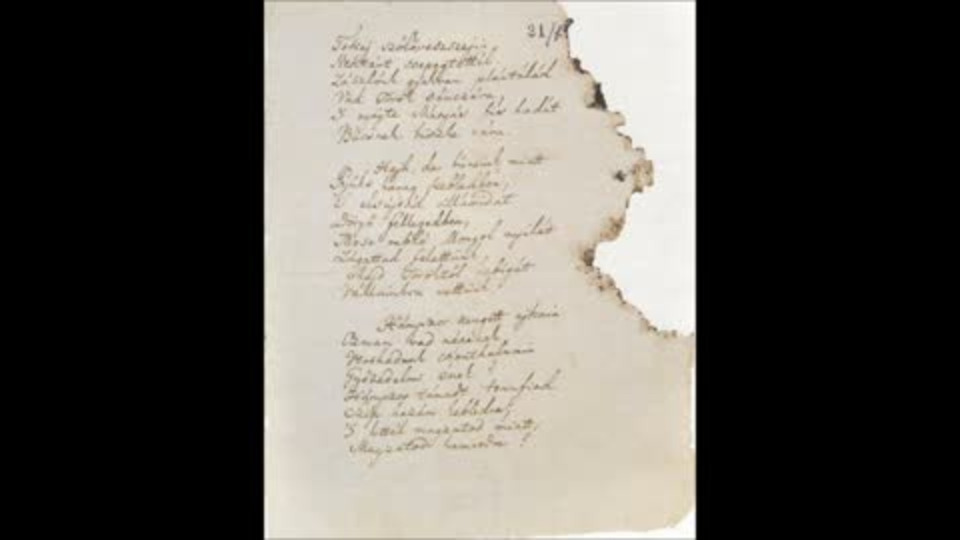 31/68
Tokaj szőlővesszein
Nektárt csepegtettél.
Zászlónk gyakran plántálád
Vad Török sáncára,
S nyögte Mátyás bús hadát
Bécsnek büszke vára.
Hajh, de bűneink miatt
Gyúlt harag kebledben,
S elsújtád villámidat
Dörgő fellegedben,
Most rabló Mongol nyilát
Zúgattad felettünk,
Majd Töröktől rabigát
Vállainkra vettünk.
Hányszor zengett ajkain
Ozman vad népének
Vert hadunk csonthalmain
Győzedelmi ének!
Hányszor támadt tenfiad
Szép hazám kebledre,
S lettél magzatod miatt
Magzatod hamvedre!